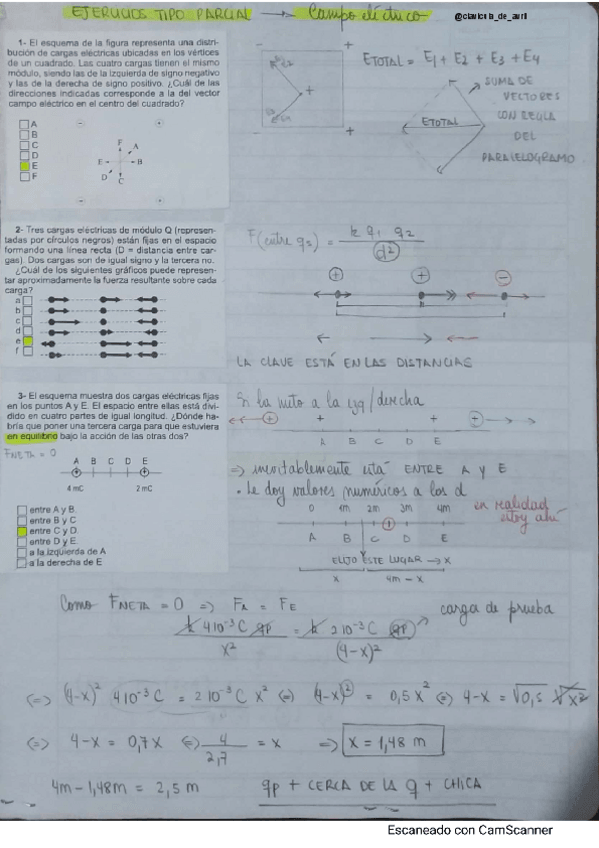 EJERCICIOS TIPO PARCIAL → Campo eléctrico
@clavicula_de_auri
1- El esquema de la figura representa una distri-
bución de cargas eléctricas ubicadas en los vértices
de un cuadrado. Las cuatro cargas tienen el mismo
módulo, siendo las de la izquierda de signo negativo
y las de la derecha de signo positivo. ¿Cuál de las
direcciones indicadas corresponde a la del vector
campo eléctrico en el centro del cuadrado?
A
B
C
D
E
F
F A
E B
D C
+
+
+
ETOTAL = E1 + E2 + E3 + E4
ETOTAL
→ SUMA DE
VECTORES
CON REGLA
DEL
PARALELOGRAMO
2- Tres cargas eléctricas de módulo Q (represen-
tadas por círculos negros) están fijas en el espacio
formando una línea recta (D = distancia entre car-
gas). Dos cargas son de igual signo y la tercera no.
¿Cuál de los siguientes gráficos puede represen-
tar aproximadamente la fuerza resultante sobre cada
carga?
a
b
c
d
e
f
F(entre qs) = k q1 q2
d²
+ + −
LA CLAVE ESTÁ EN LAS DISTANCIAS
3- El esquema muestra dos cargas eléctricas fijas
en los puntos A y E. El espacio entre ellas está divi-
dido en cuatro partes de igual longitud. ¿Dónde ha-
bría que poner una tercera carga para que estuviera
en equilibrio bajo la acción de las otras dos?
FNETA = 0
A B C D E
4 mC 2 mC
entre A y B.
entre B y C
entre C y D.
entre D y E.
a la izquierda de A
a la derecha de E
Si la meto a la izq/derecha
+ + + +
A B C D E
⇒ inevitablemente está ENTRE A y E
• Le doy valores numéricos a los d
0 1m 2m 3m 4m
en realidad
estoy ahí
A B C D E
ELIJO ESTE LUGAR → x
x 4m − x
Como FNETA = 0 ⇒ FA = FE
carga de prueba
k 4 10⁻³ C qp = k 2 10⁻³ C qp
x² (4-x)²
⇔ (4-x)² 4 10⁻³ C = 2 10⁻³ C x² ⇔ (4-x)² = 0,5 x² ⇔ 4-x = √0,5 √x²
⇔ 4-x = 0,7x ⇔ 4 = x ⇒ x = 1,48 m
2,7
4m − 1,48m = 2,5 m qp + CERCA DE LA q + CHICA
Escaneado con CamScanner